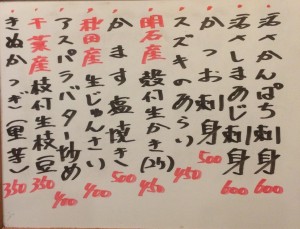 活かんぱち刺身 600
活さしまあじ刺身 600
かつお刺身 500
スズキのあらい 450
明石産 殻付生かき(2ケ) 450
かます塩焼き 500
秋田産 生じゅんさい 400
アスパラバター炒め 400
千葉産 枝付生枝豆 350
きぬかつぎ(里芋) 350